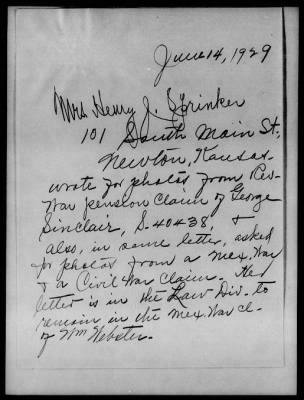 June 14, 1929
Mrs Henry J. Sprinker
101 South Main St.,
Newton, Kansas.
wrote for photos from Rev-
War pension claim of George
Sinclair, S-40438, &
also, in same letter, asked
for photos from a Mex. War
& a Civil War claim. Her
letter is in the Law Div. to
remain in the Mex. War cl.
of Wm Webster.